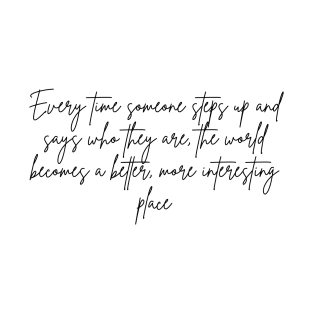 Every time someone steps up and
says who they are, the world
becomes a better, more interesting
place